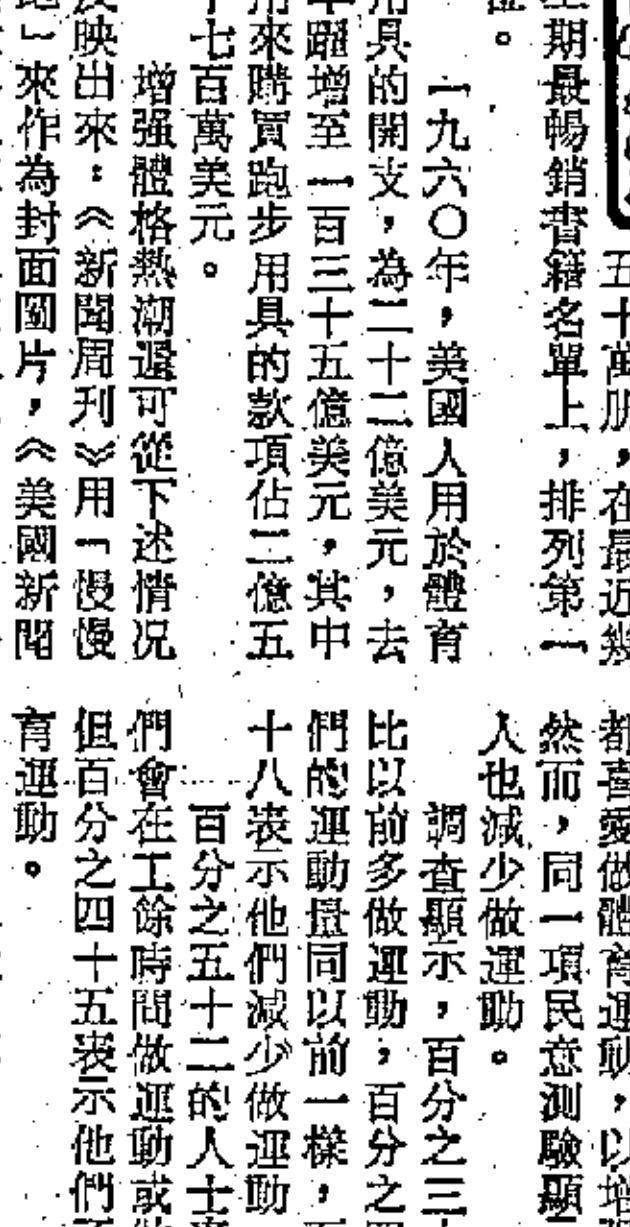 五十萬册，在最近幾
星期最暢銷書籍名單上，排列第一
位。
一九六〇年，美國人用於體育
用具的開支，為二十二億美元，去
年躍增至一百三十五億美元，其中
用來購買跑步用具的款項佔二億五
千七百萬美元。
增强體格熱潮還可從下述情况
反映出來：《新聞周刊》用「慢慢
跑」來作為封面圖片，《美國新聞
都喜愛做體育運動，以增
然而，同一項民意測驗顯
人也減少做運動。
調查顯示，百分之三
比以前多做運動，百分之四
們的運動量同以前一樣，
十八表示他們減少做運動
百分之五十二的人士
們會在工餘時間做運動或
但百分之四十五表示他們
育運動。